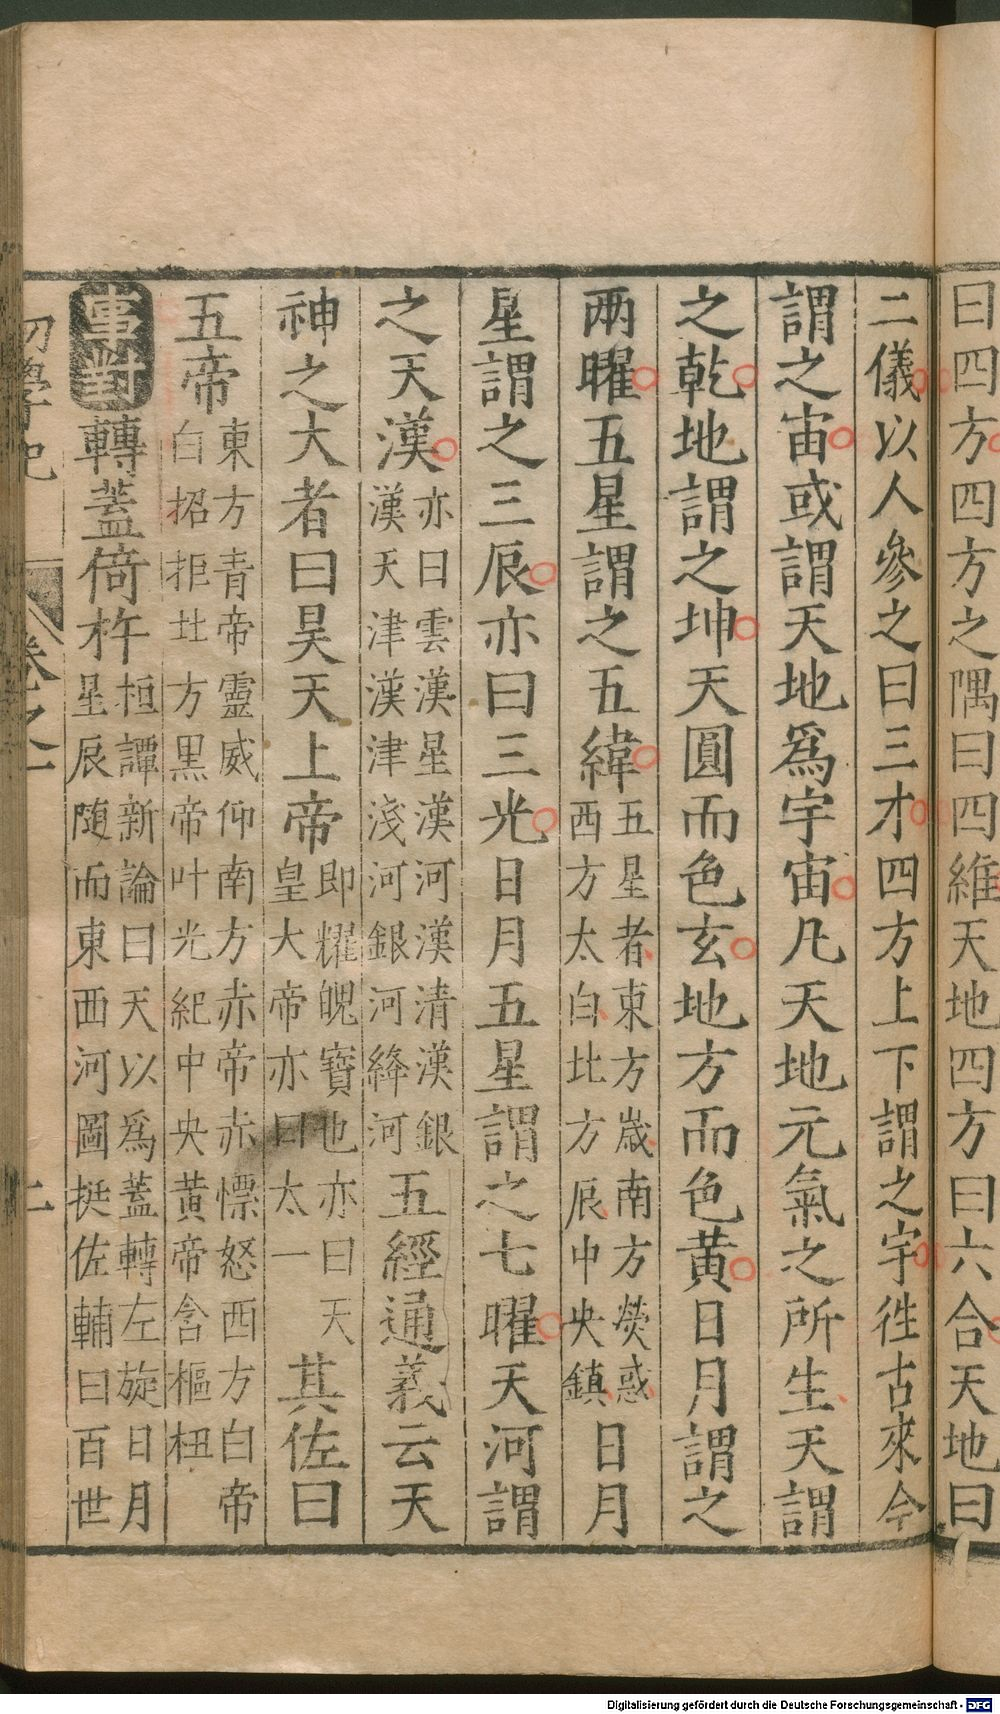 曰四方四方之隅曰四維天地四方曰六合天地曰
二儀以人參之曰三才四方上下謂之宇徃古來今
謂之宙或謂天地爲宇宙凡天地元氣之所生天謂
之乾地謂之坤天圓而色玄地方而色黃日月謂之
兩曜五星謂之五緯五星者東方歲南方熒惑西方太白北方辰中央鎮日月
星謂之三辰亦曰三光日月五星謂之七曜天河謂
之天漢亦曰雲漢星漢河漢清漢銀漢天津漢津淺河銀河絳河五經通義云天
神之大者曰昊天上帝即耀魄寶也亦曰天皇大帝亦曰太一其佐曰
五帝東方青帝靈威仰南方赤帝赤熛怒西方白帝白招拒北方黑帝叶光紀中央黃帝含樞杻
事對轉蓋倚杵桓譚新論曰天以爲蓋轉左旋日月星辰随而東西河圖挺佐輔曰百世
初學記 卷之一 二
Digitalisierung gefördert durch die Deutsche Forschungsgemeinschaft - DFG